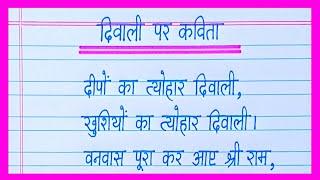 दिवाली पर कविता
दीपों का त्योहार दिवाली,
खुशियों का त्योहार दिवाली।
वनवास पूरा कर आए श्री राम,